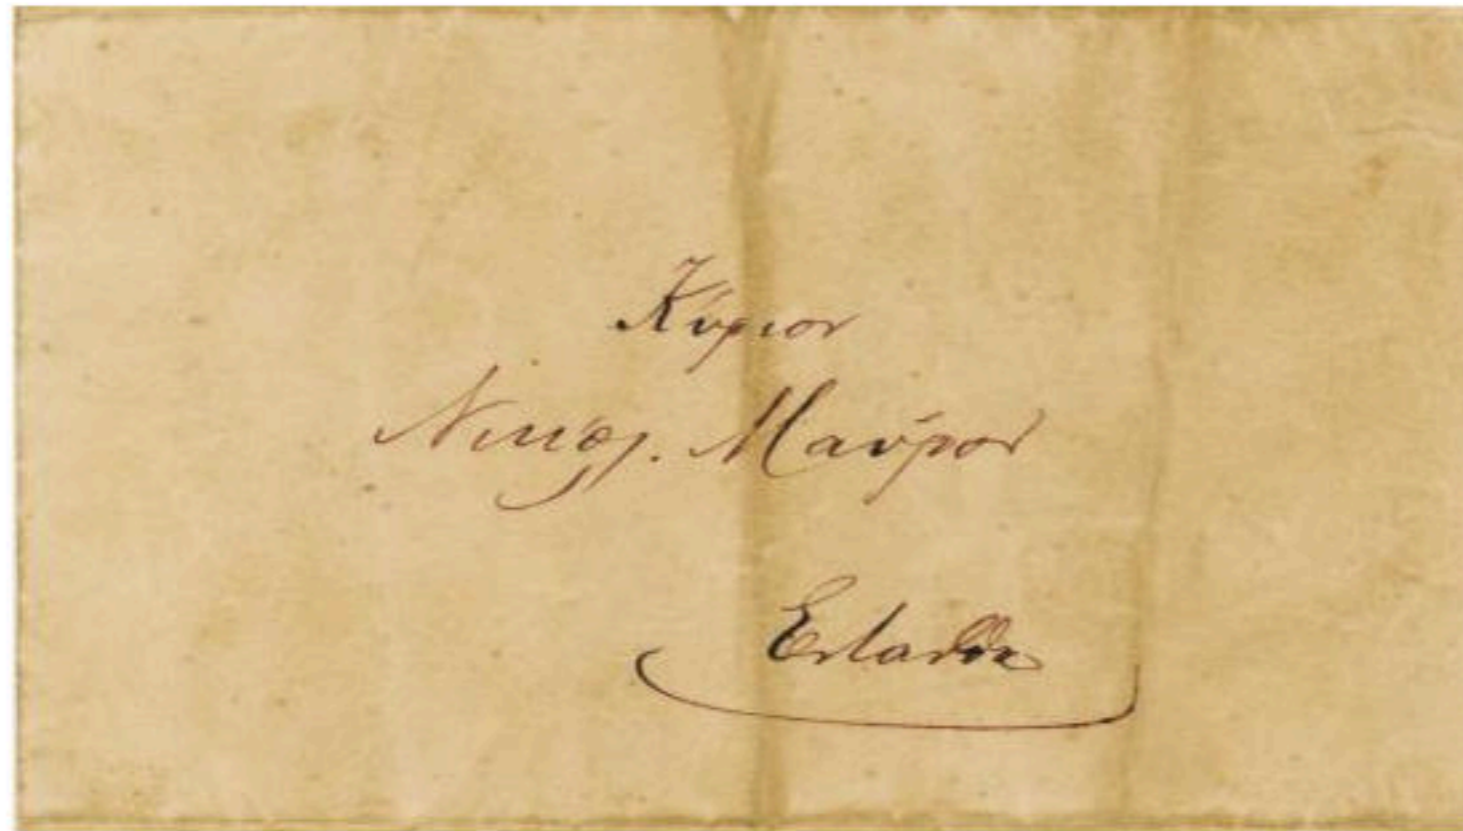 Κύριον
Νικόλ. Μαύρον
Ενταῦθα